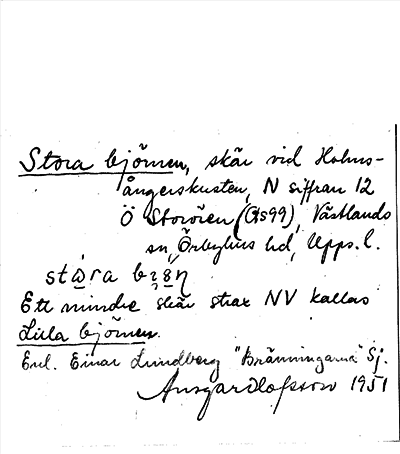 Stora björnen, skär vid Holms-
ångerskusten, N siffran 12
Ö Storöien (Gs99), Västlands
sn, Örbyhus hd, Upps. l.
Ett mindre skär strax NV kallas
Lilla björnen.
Enl. Einar Lundberg "Bränningarna" Sj.
Ansgar Olofsson 1951